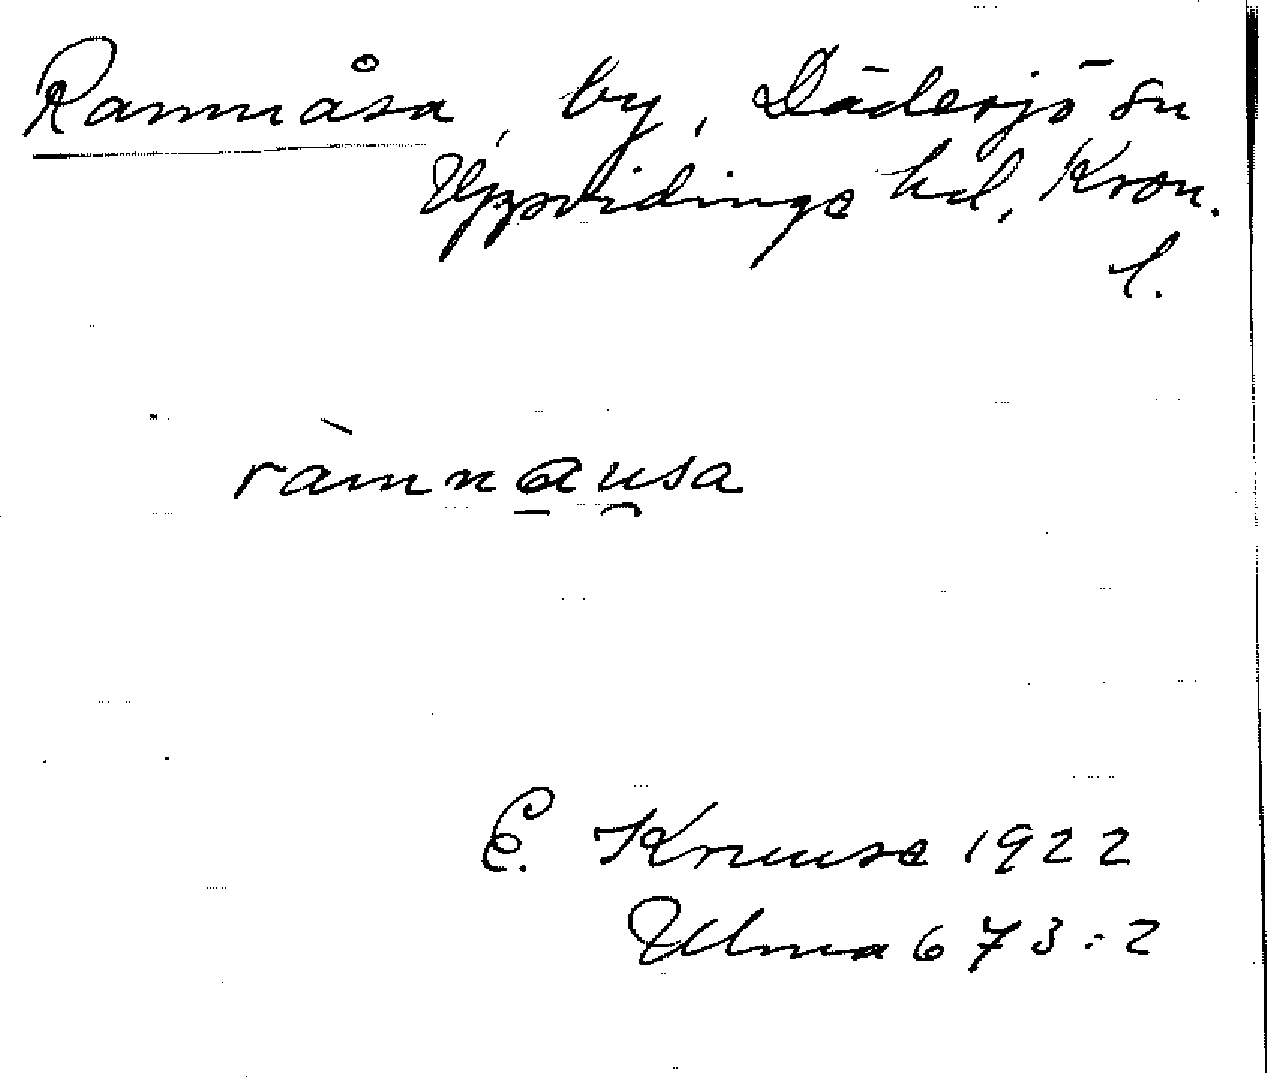 Ramnåsa, by, Dädesjö sn
Uppvidinge hd, Kron.
l.
ràmnausa
E. Kruuse 1922
Ulma 673:2